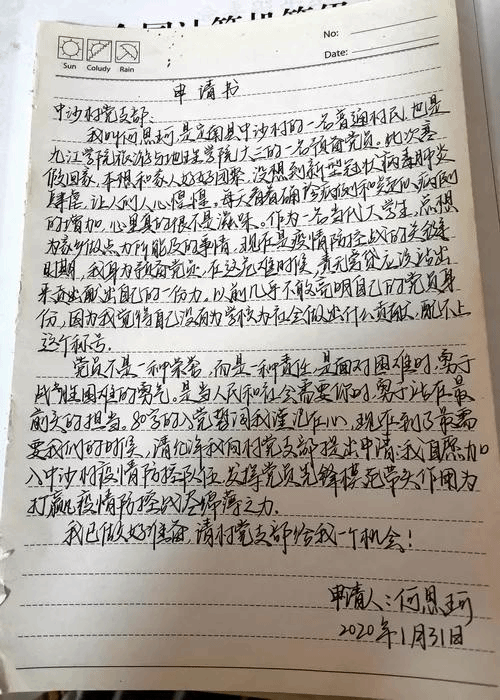 No:
Date:
Sun Coludy Rain
申请书
中沙村党支部：
我叫何思珂，是定南县中沙村的一名普通村民，也是
九江学院旅游与地理学院大三的一名预备党员。此次寒
假回家，本想和家人好好团聚，没想到新型冠状病毒肺炎
肆虐，让人们人心惶惶。每天看着确诊病例和疑似病例
的增加，心里真的很不是滋味。作为一名当代大学生，总想
为家乡做点力所能及的事情，现在是疫情防控战的关键
时期，我身为预备党员，在这危难时候，责无旁贷应该站出
来贡献出自己的一份力。以前几乎不敢亮明自己的党员身
份，因为我觉得自己没有为学校为社会做出什么贡献，配不上
这个称号。
党员不是一种荣誉，而是一种责任，是面对困难时，勇于
战胜困难的勇气。是当人民和社会需要你时，勇于站在最
前头的担当。80字的入党誓词我谨记在心，现在到了最需
要我们的时候，请允许我向村党支部提出申请：我自愿加
入中沙村疫情防控队伍，发挥党员先锋模范带头作用，为
打赢疫情防控战尽绵薄之力。
我已做好准备，请村党支部给我一个机会！
申请人：何思珂
2020年1月31日